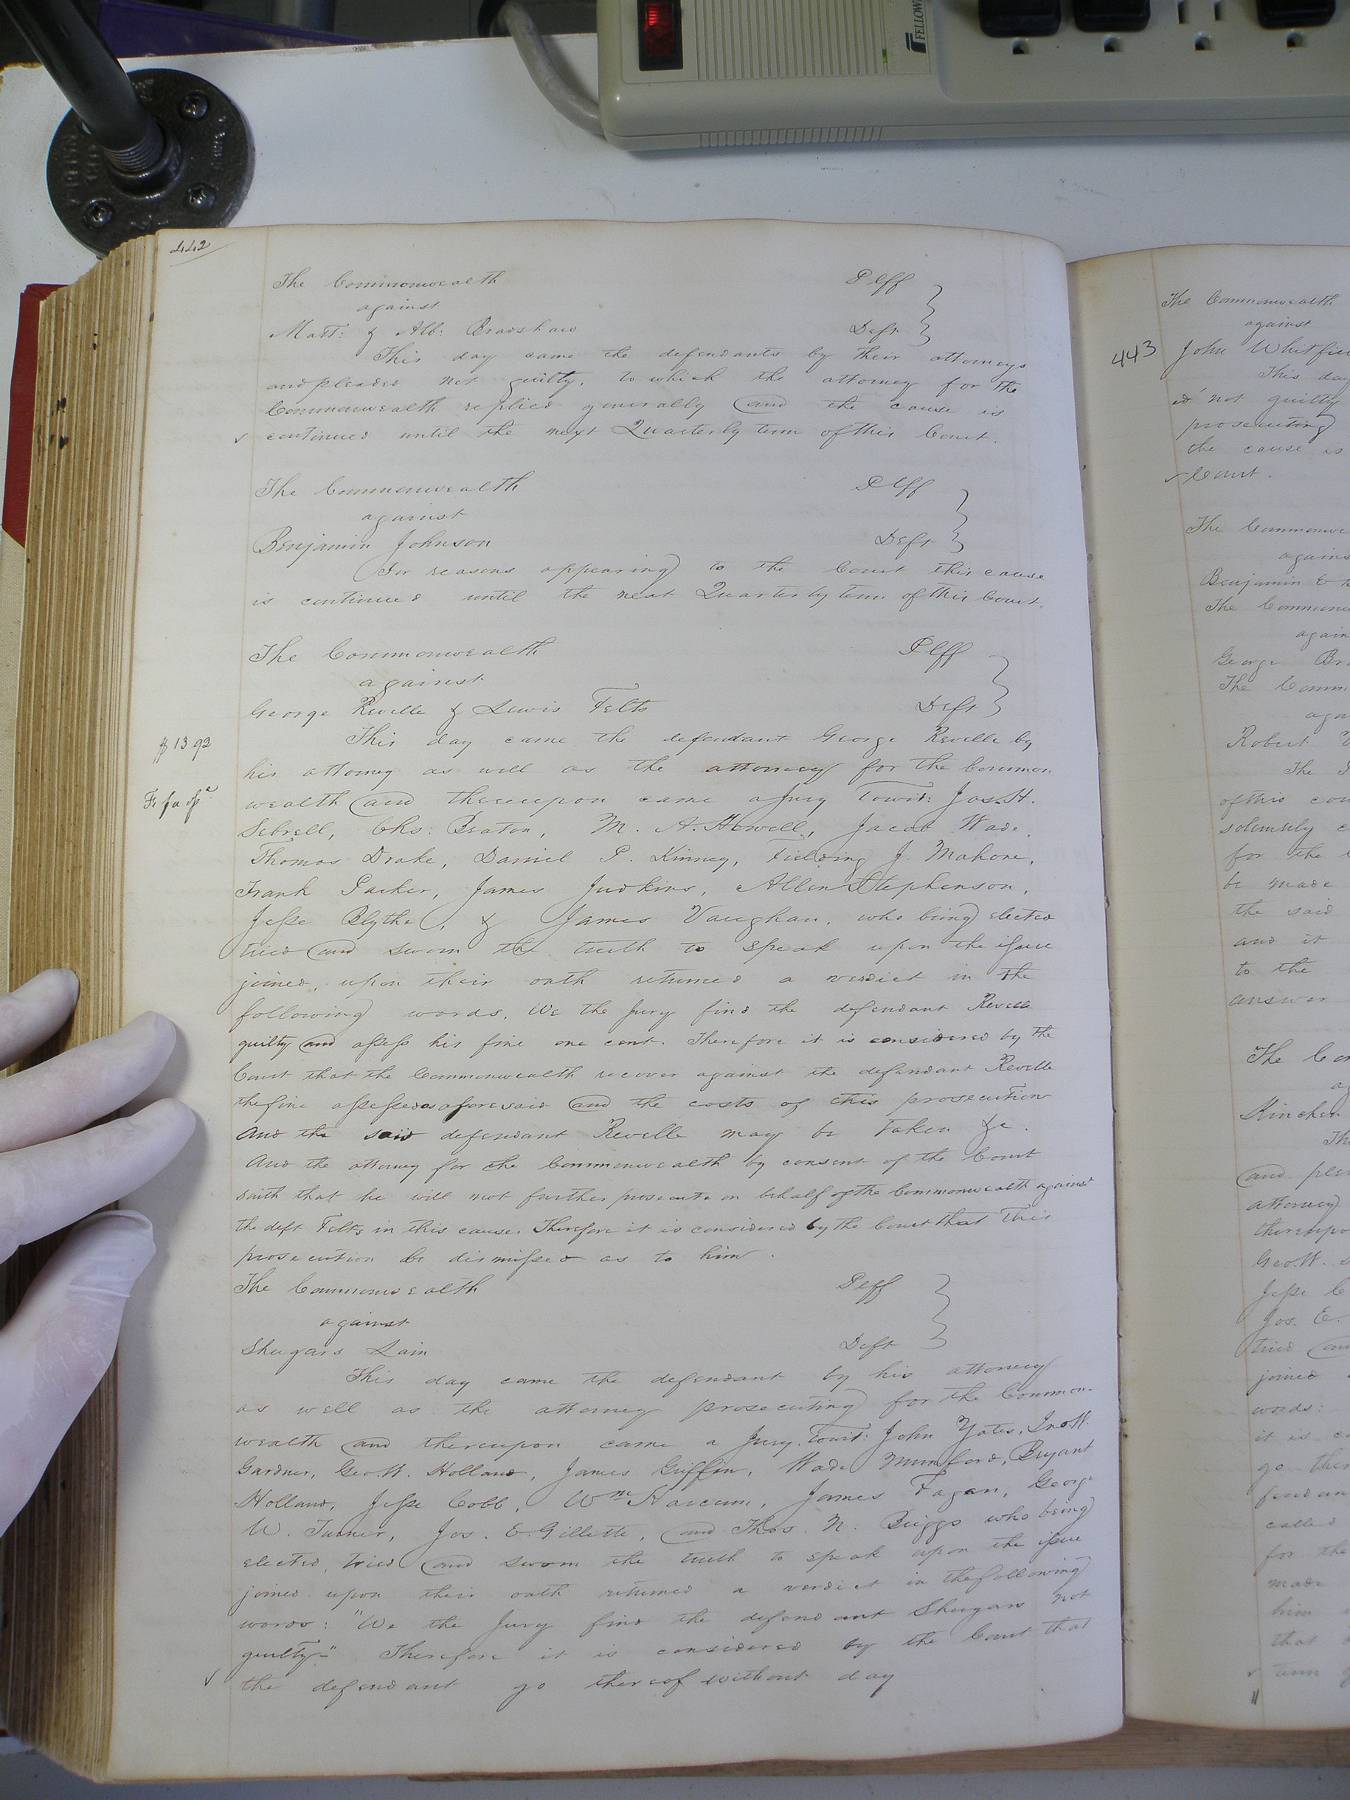 FELLOW
442
The Commonwealth Plff
against
Matt: & Alb: Bradshaw Deft
This day came the defendants by their attorneys
and pleaded not guilty, to which the attorney for the
Commonwealth replied generally and the cause is
continued until the next Quarterly term of this Court.
The Commonwealth Plff
against
Benjamin Johnson Deft
For reasons appearing to the Court this cause
is continued until the next Quarterly term of this Court.
The Commonwealth Plff
against
George Reville & Lewis Felts Deft
$13 92
This day came the defendant George Reville by
his attorney as well as the attorney for the Common
Fi fa
wealth and thereupon came a Jury Towit: Jas. H.
Sebrell, Chs: Beaton, M. A. Howell, Jacob Wade,
Thomas Drake, Daniel P. Kinney, Fielding J. Mahone,
Frank Parker, James Judkins, Allen Stephenson,
Jesse Blythe, & James Vaughan, who being elected
tried and sworn the truth to speak upon the issue
joined, upon their oath returned a verdict in the
following words, We the Jury find the defendant Reville
guilty and assess his fine one cent. Therefore it is considered by the
Court that the Commonwealth recover against the defendant Reville
the fine assessed as aforesaid and the costs of this prosecution
And the said defendant Reville may be taken &c.
And the attorney for the Commonwealth by consent of the Court
saith that he will not further prosecute on behalf of the Commonwealth against
the deft Felts in this cause. Therefore it is considered by the Court that this
prosecution be dismissed as to him.
The Commonwealth Plff
against
Shugars Lain Deft
This day came the defendant by his attorney
as well as the attorney prosecuting for the Common-
wealth and thereupon came a Jury. Towit: John Yates, Jno W.
Gardner, Geo W. Holland, James Griffin, Wade Mumford, Bryant
Holland, Jesse Cobb, Wm Harcum, James Fagan, George
W. Turner, Jos. E. Gillette, and Thos. N. Briggs who being
elected, tried and sworn the truth to speak upon the issue
joined upon their oath returned a verdict in the following
words: "We the Jury find the defendant Shugars not
guilty." Therefore it is considered by the Court that
the defendant go thereof without day
443
The Commonwealth
against
John Whitfie
This day
ed not guilty
prosecuting
the cause is
Court.
The Commonwe
agains
Benjamin &
The Common
again
George Br
The Comm
aga
Robert
The
of this cou
solemnly c
for the
be made
the said
and it
to the
answer
The Co
a
Kinchen
Th
and plea
attorney
thereupo
Geo W.
Jesse C
Jos. E.
tried and
joined
words:
it is c
go ther
fendan
called
for the
made
him
that
term